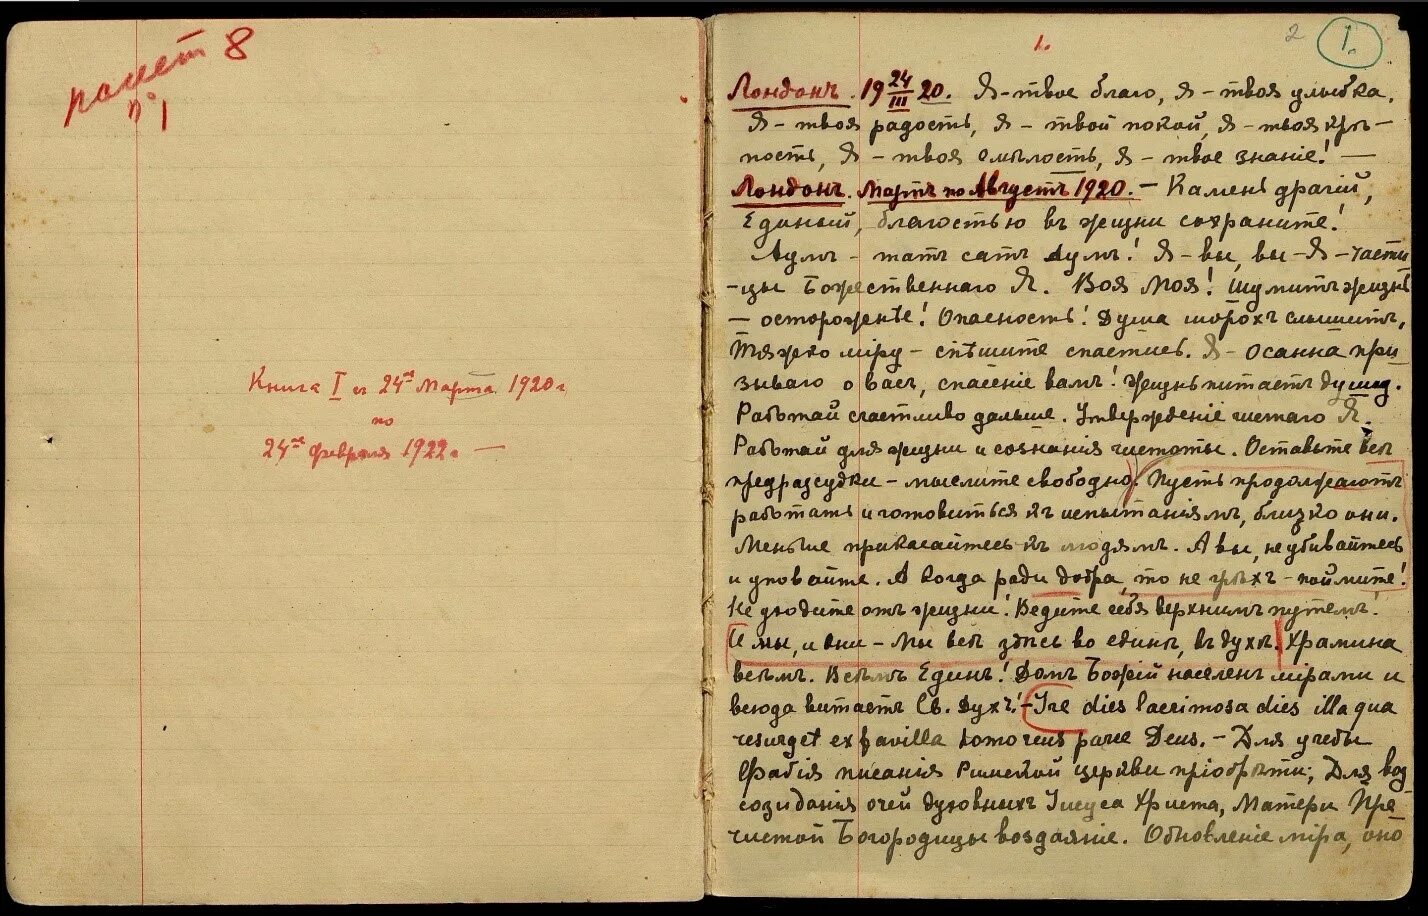 пакет 8
№ 1
Книга I съ 24го Марта 1920 г.
по
24ое февраля 1922 г. —
1.
2
1.
Лондонъ. 19 24/III 20. Я – твое благо, Я – твоя улыбка,
Я – твоя радость, Я – твой покой, Я – твоя крѣ–
пость, Я – твоя смѣлость, Я – твое знаніе! —
Лондонъ. Мартъ по Августъ 1920. – Камень драгій,
Единый, благостью въ жизни сохраните!
Аумъ – татъ сатъ аумъ! Я – вы, вы – Я – части
–цы Божественнаго Я. Воя Моя! Шумитъ жизнь
– осторожнѣе! Опасность! Душа шорохъ слышитъ,
Тяжко міру – спѣшите спастись. Я – Осанна при
зываю о васъ, спасеніе вамъ! Жизнь питаетъ душу.
Работай счастливо дальше. Утвержденіе чистаго Я.
Работай для жизни и сознанія чистоты. Оставьте всѣ
предразсудки – мыслите свободно. Пусть продолжаютъ
работать и готовиться къ испытаніямъ, близко они.
Меньше прикасайтесь къ людямъ. А вы, не убивайтесь
и уповайте. А когда ради добра, то не грѣхъ – поймите!
Не уходите отъ жизни! Ведите себя верхнимъ путемъ!
И мы, и они – Мы всѣ здѣсь во единѣ, въ духѣ. Храмина
всѣмъ. Всѣмъ Единъ! Домъ Божій населенъ мірами и
всюду витаетъ Св. Духъ! – Ire dies lacrimosa dies illa qua
resurget ex favilla homo reus parce Deus. – Для учебы
Фабія писанія Римской церкви пріобрѣти; Для воз
созиданія очей духовныхъ Іисуса Христа, Матери Пре
чистой Богородицы воздаяніе. Обновленіе міра, оно